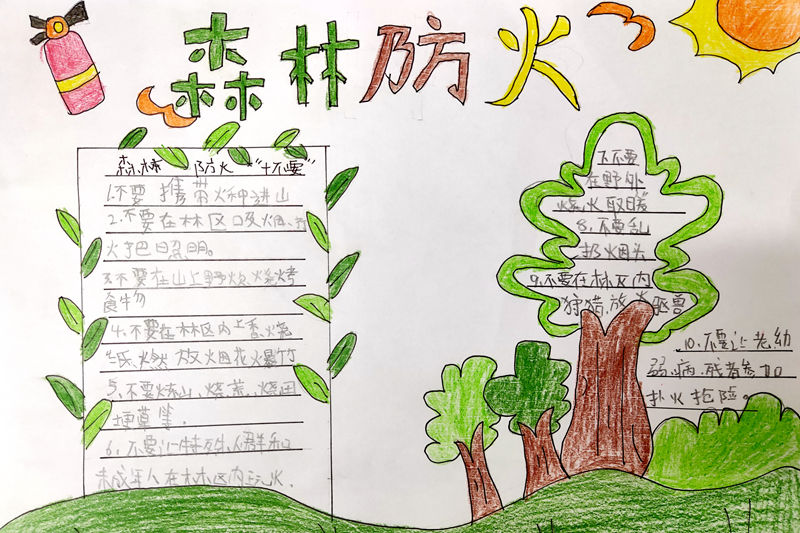 森林防火
森林 防火 "十不要"
1.不要携带火种进山
2.不要在林区吸烟、打
火把照明。
3.不要在山上野炊、烧烤
食物
4.不要在林区内上香、烧
纸、燃放烟花爆竹
5.不要炼山、烧荒、烧田
埂草等.
6.不要让特殊人群和
未成年人在林区内玩火.
7.不要
在野外
烧火取暖
8.不要乱
扔烟头
9.不要在林区内
狩猎,放火驱兽
10.不要让老幼
弱、病、残者参加
扑火抢险。